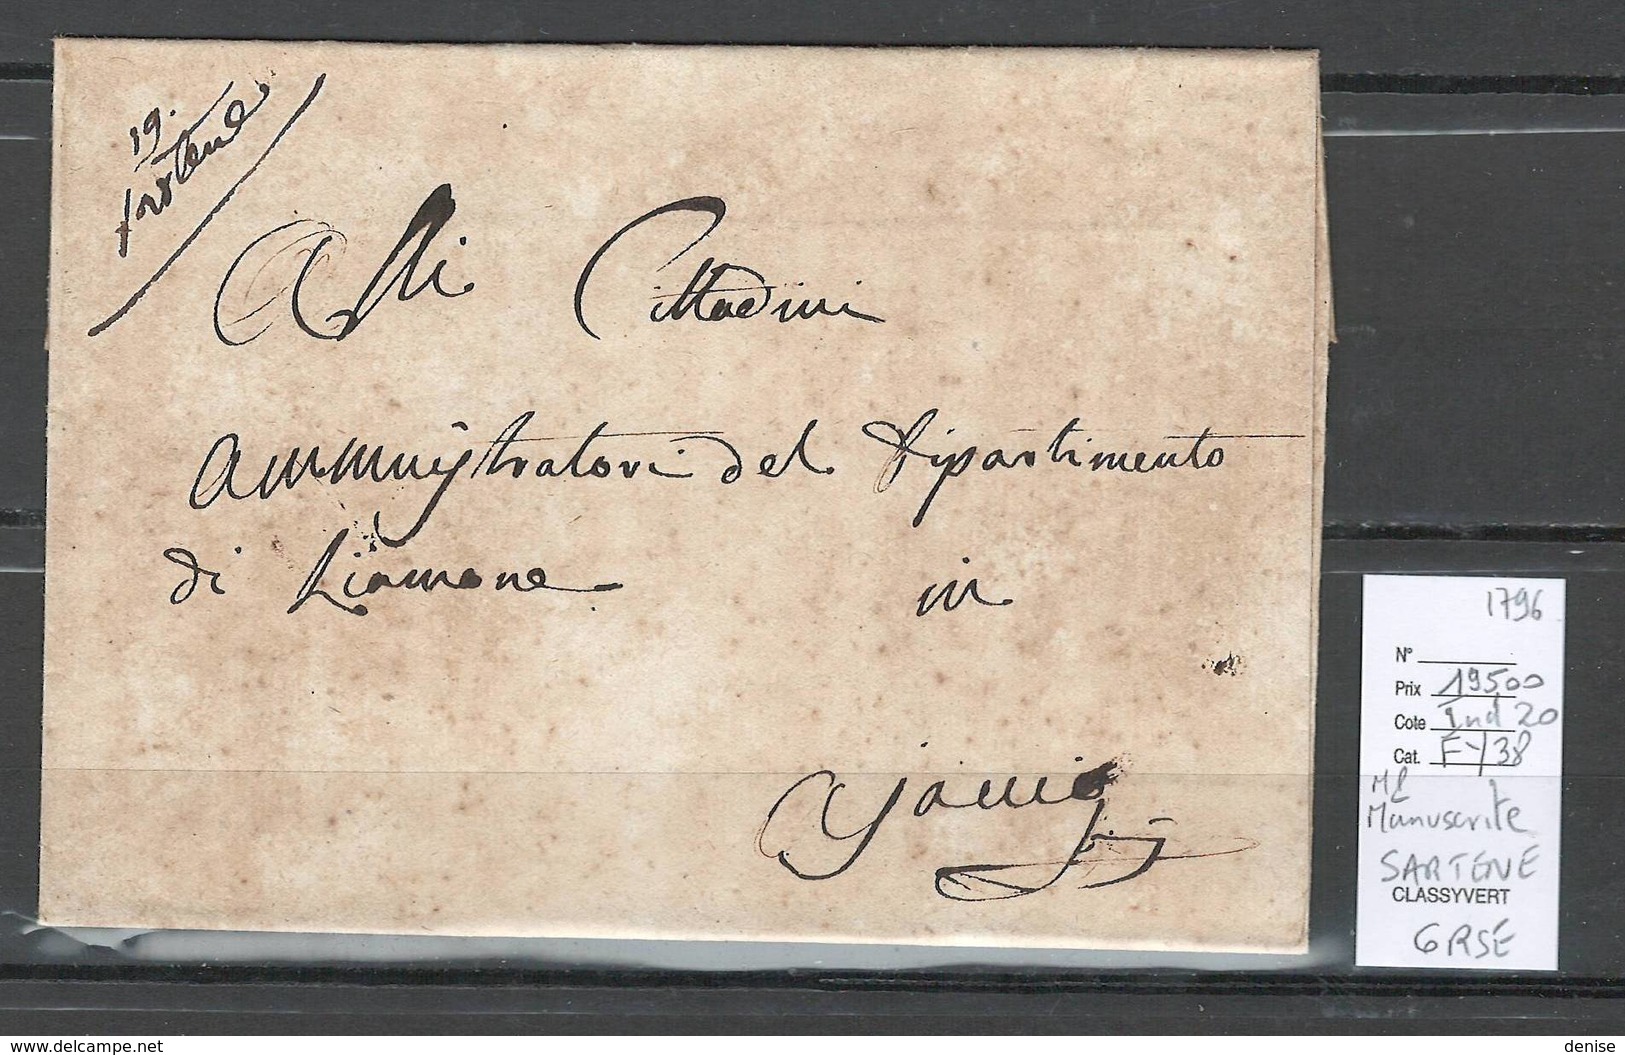 19.
Sartene
Alli Cittadini
Amministratori del Dipartimento
di Liamone in
Ajaccio
1796
N°
Prix 195,00
Cote Ind 20
Cat. FY38
Manuscrite
SARTENE
CLASSYVERT
CORSE
www.delcampe.net
denise